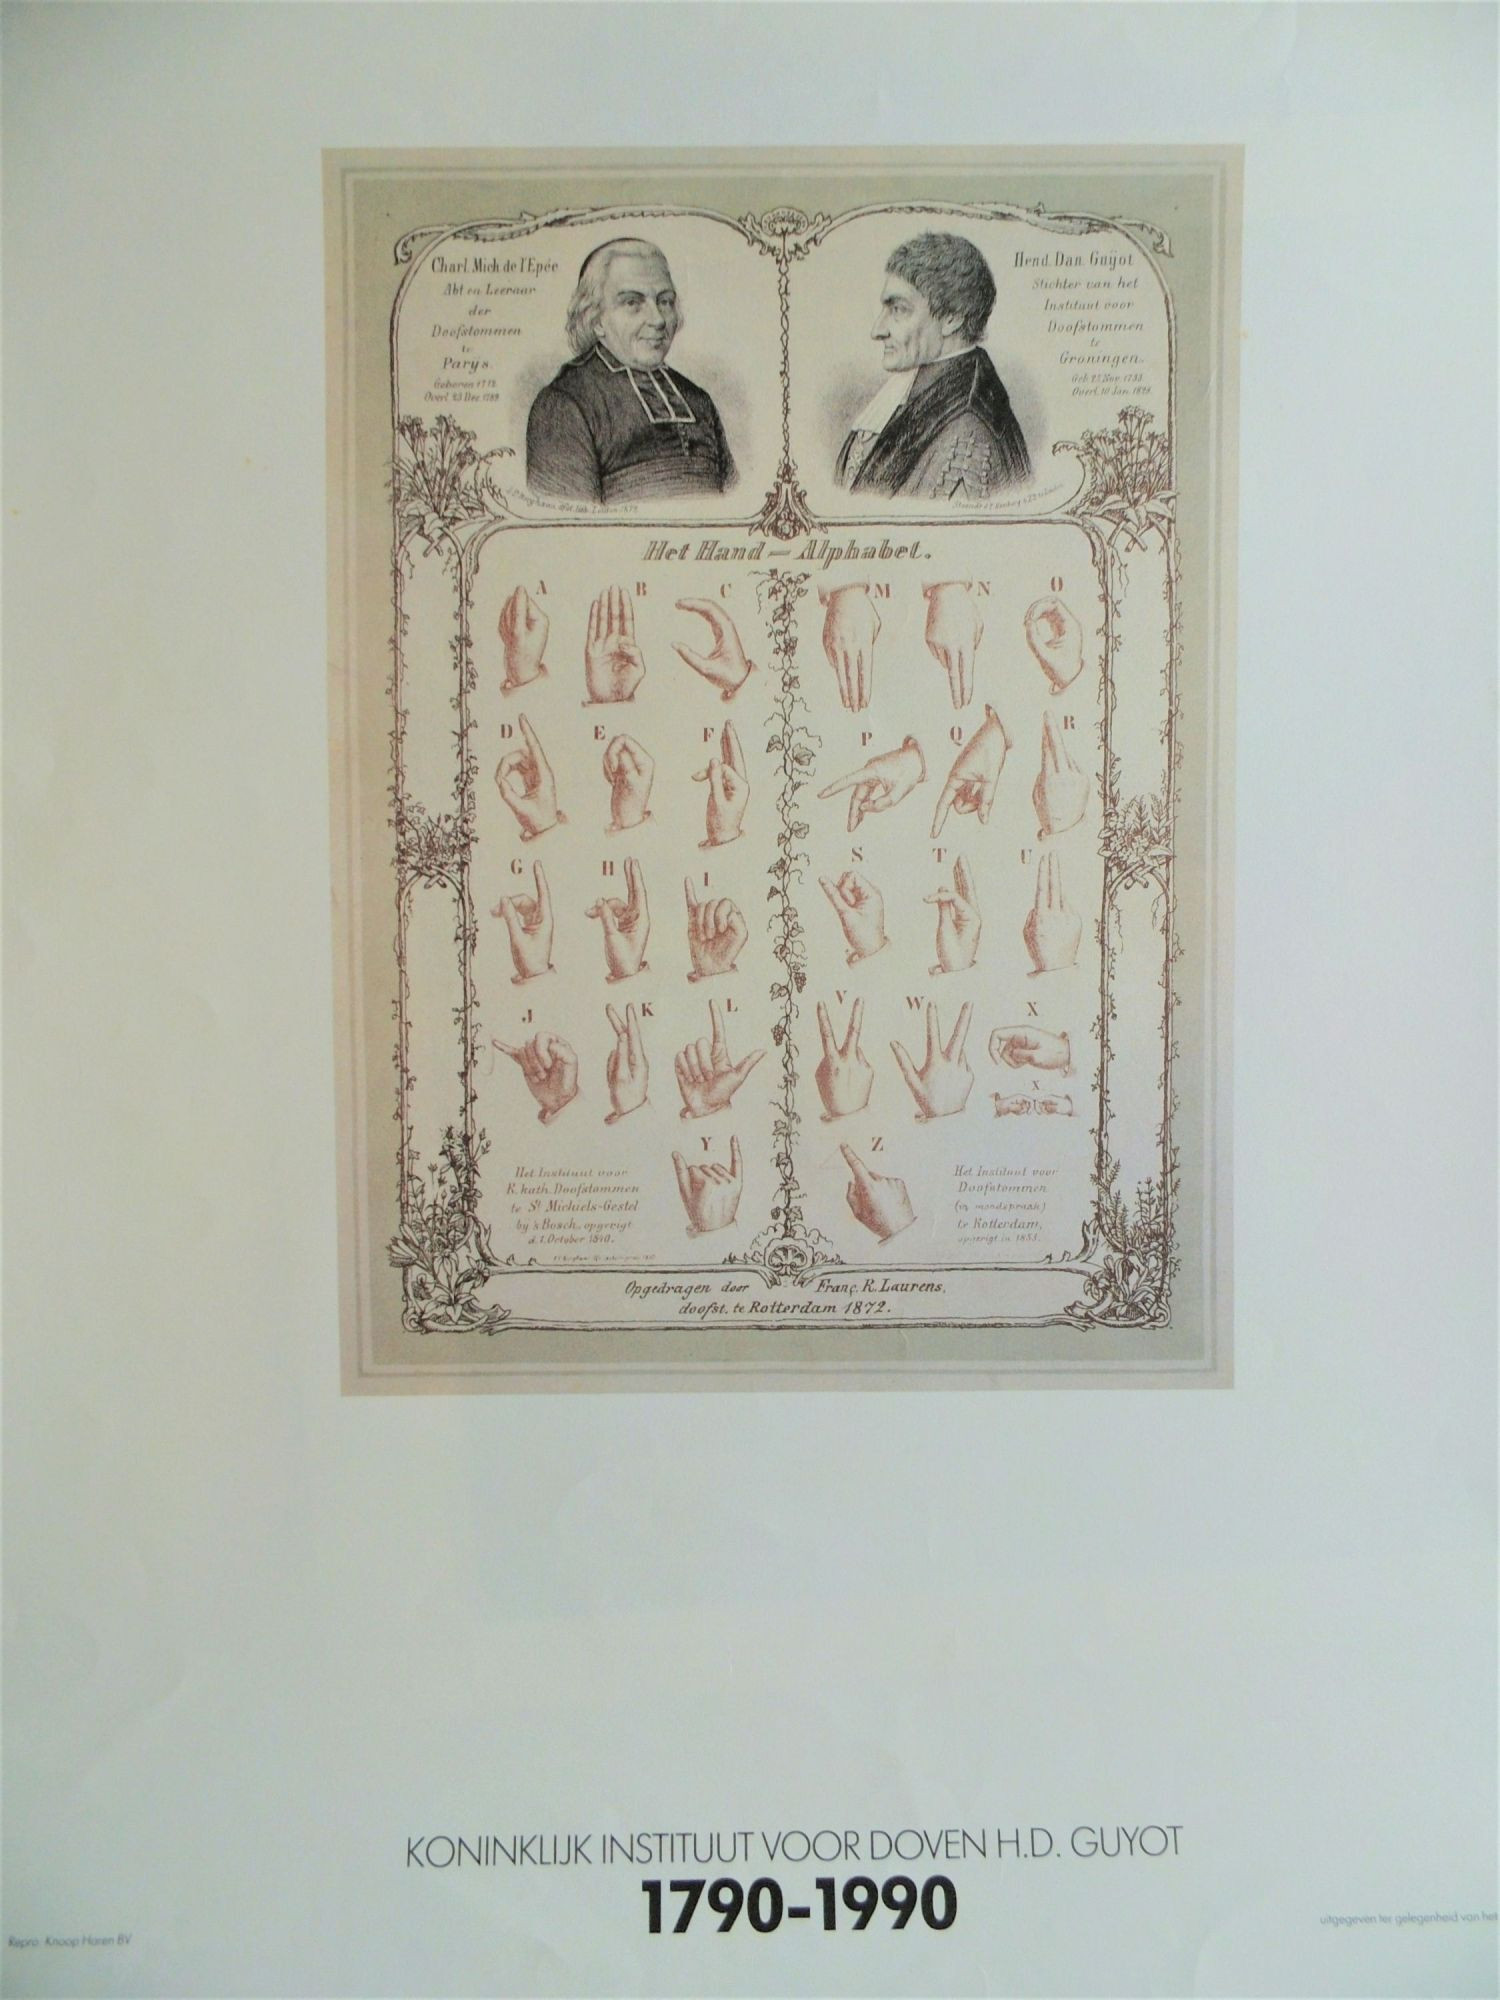 Charl. Mich. de l'Epée
Abt en Leeraar
der
Doofstommen
te
Parys.
Geboren 1712.
Overl. 23 Dec. 1789.
Hend. Dan. Guÿot
Stichter van het
Instituut voor
Doofstommen
te
Groningen.
Geb. 25 Nov. 1753.
Overl. 10 Jan. 1828.
Het Hand - Alphabet.
A B C
D E F
G H I
J K L
Y
M N O
P Q R
S T U
V W X
X
Z
Het Instituut voor
R. kath. Doofstommen
te St Michiels-Gestel
by 's Bosch, opgerigt
d. 1. October 1840.
Het Instituut voor
Doofstommen
(in mondspraak)
te Rotterdam,
opgerigt in 1853.
Opgedragen door Franç. R. Laurens,
doofst. te Rotterdam 1872.
KONINKLIJK INSTITUUT VOOR DOVEN H.D. GUYOT
1790-1990
Repro: Knoop Haren BV
uitgegeven ter gelegenheid van het